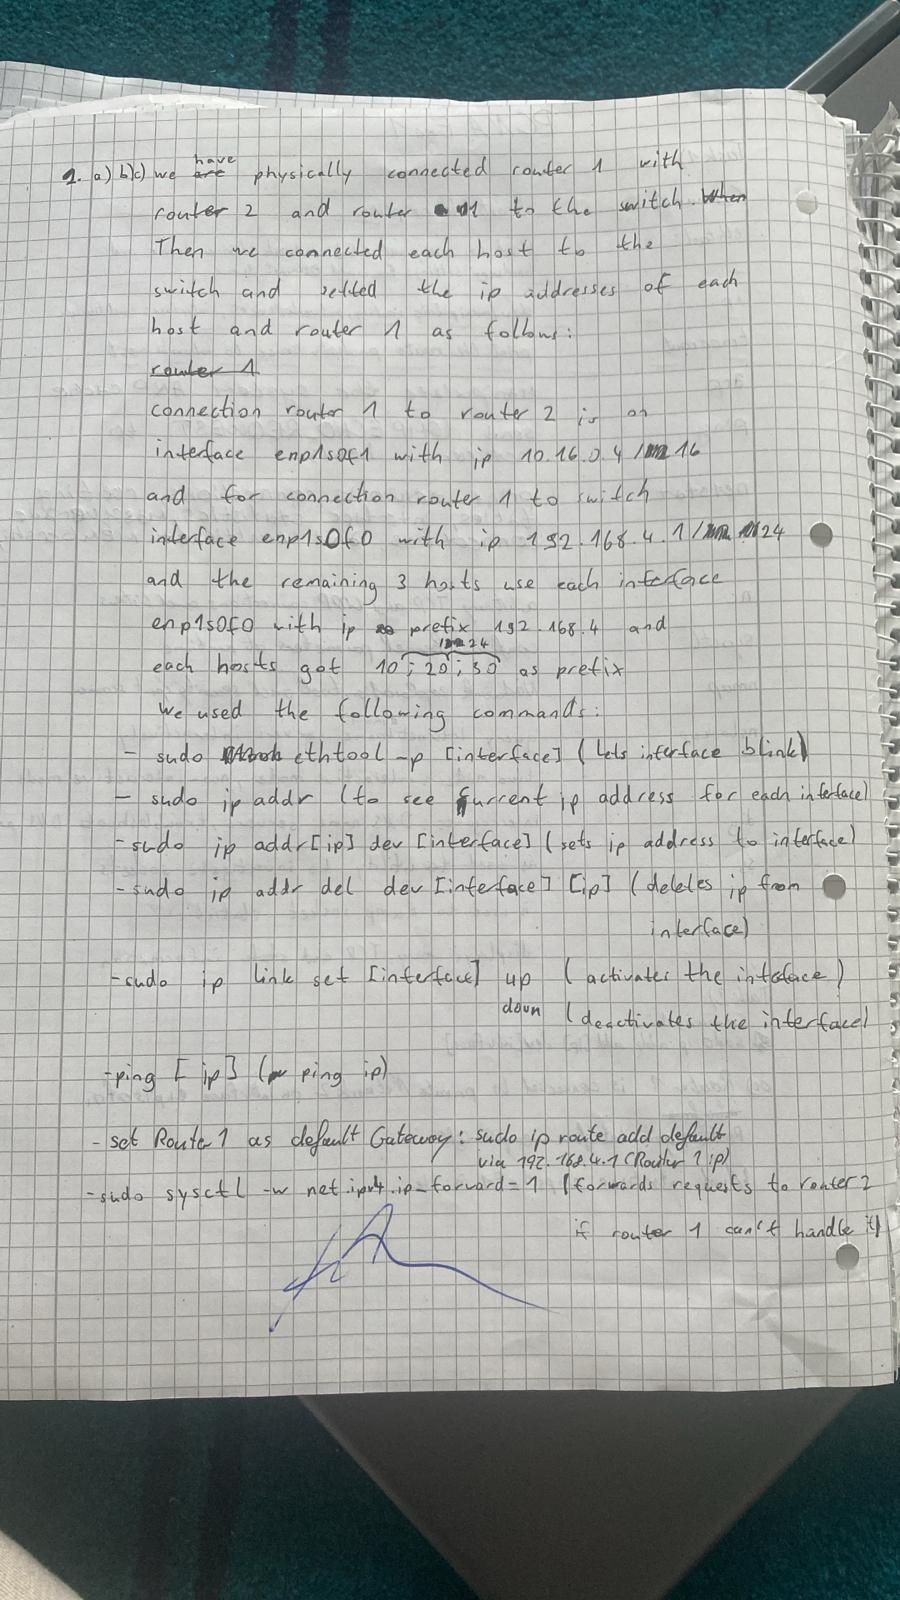 1. a) b) c) we have physically connected router 1 with
router 2 and router 1 to the switch.
Then we connected each host to the
switch and setted the ip addresses of each
host and router 1 as follows:
router 1
connection router 1 to router 2 is on
interface enp1s0f1 with ip 10.16.0.4/16
and for connection router 1 to switch
interface enp1s0f0 with ip 192.168.4.1/24
and the remaining 3 hosts use each interface
enp1s0f0 with ip prefix 192.168.4 and
24
each hosts got 10; 20; 30 as prefix
We used the following commands:
- sudo ethtool -p [interface] (lets interface blink)
- sudo ip addr (to see current ip address for each interface)
- sudo ip addr [ip] dev [interface] (sets ip address to interface)
- sudo ip addr del dev [interface] [ip] (deletes ip from
interface)
- sudo ip link set [interface] up (activates the interface)
down (deactivates the interface)
- ping [ip] (ping ip)
- set Route 1 as default Gateway: sudo ip route add default
via 192.168.4.1 (Router 1 ip)
- sudo sysctl -w net.ipv4.ip_forward=1 (forwards requests to router 2
if router 1 can't handle it)